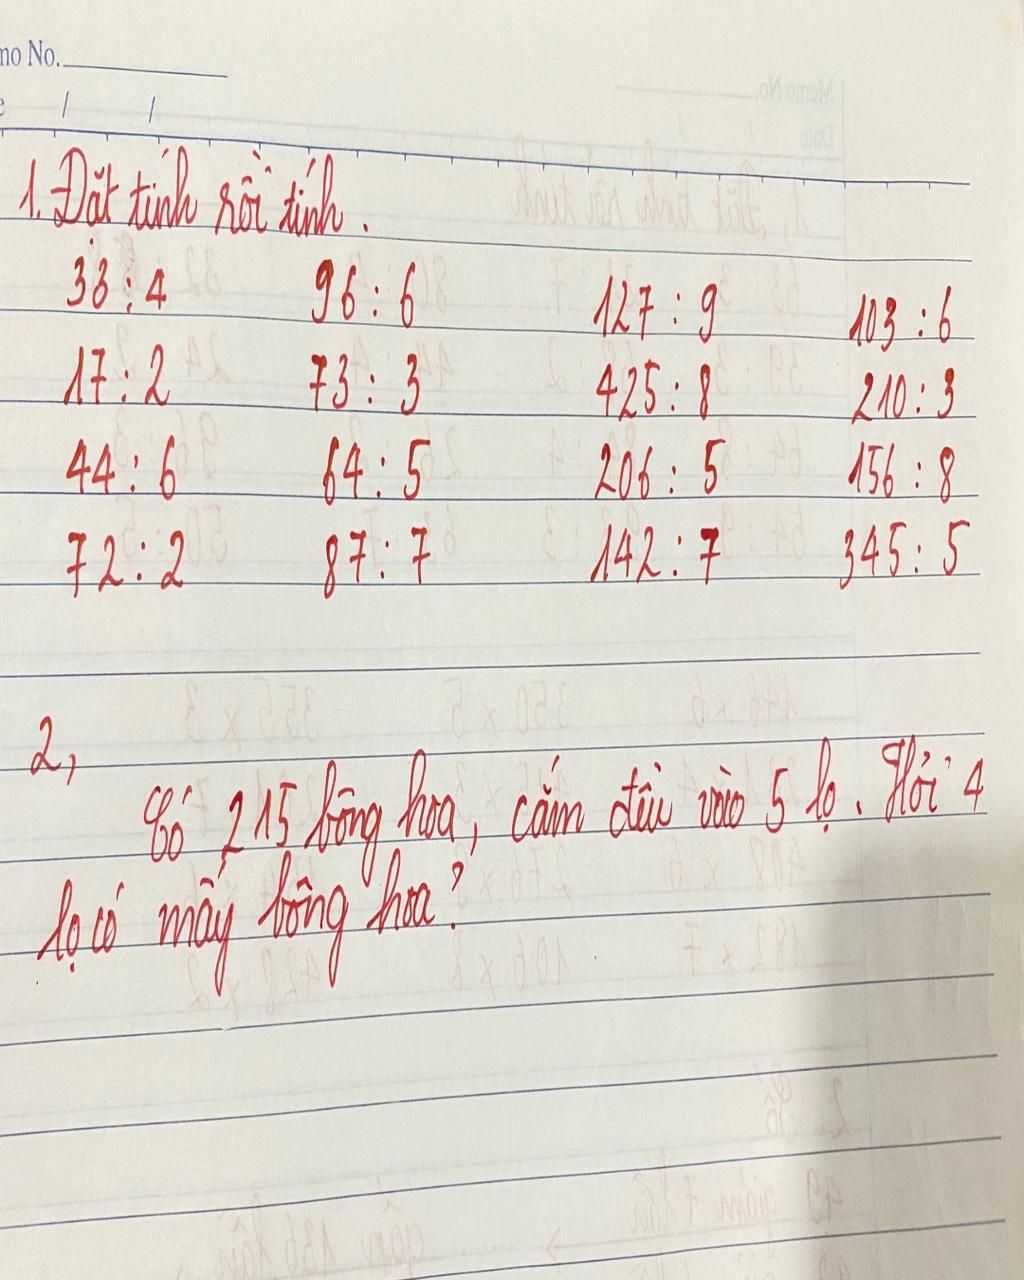 mo No.
e / /
1. Đặt tính rồi tính.
38 : 4 96 : 6 127 : 9 103 : 6
17 : 2 73 : 3 425 : 8 210 : 3
44 : 6 64 : 5 206 : 5 156 : 8
72 : 2 87 : 7 142 : 7 345 : 5
2,
Có 215 bông hoa, cắm đều vào 5 lọ. Hỏi 4
lọ có mấy bông hoa?